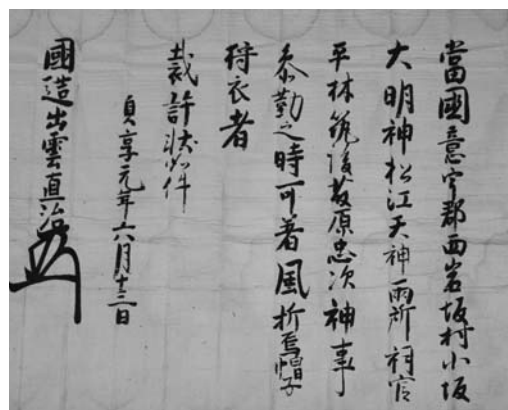 當國意宇郡西岩坂村小坂
大明神松江天神両所祠官
平林筑後藤原忠次神事
参勤之時可着風折烏帽子
狩衣者
裁許状如件
貞享元年六月十三日
國造出雲直治